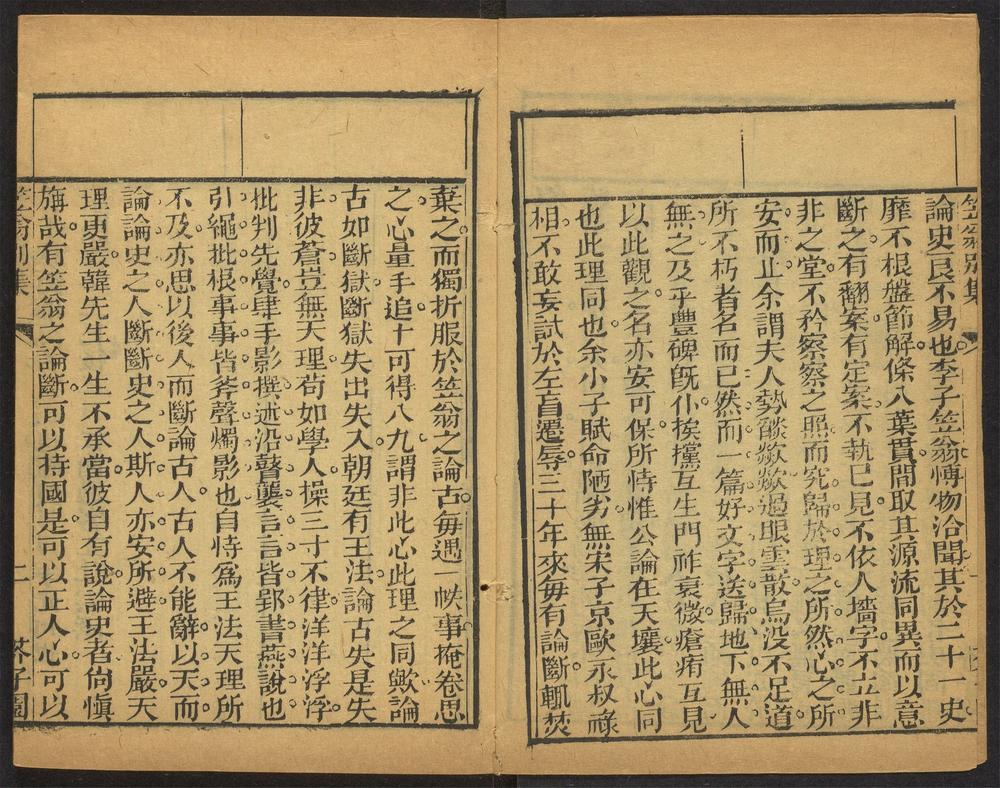 笠翁別集
論史良不易也李子笠翁博物洽聞其於二十一史
靡不根盤節解條入葉貫間取其源流同異而以意
斷之有翻案有定案不執已見不依人墻字不立非
非之堂不矜察察之照而究歸於理之所然心之所
安而止余謂夫人勢燄歘歘過眼雲散鳥没不足道
所不朽者名而已然而一篇好文字送歸地下無人
無之及乎豐碑旣仆挨攩互生門祚衰微瘡痏互見
以此觀之名亦安可保所恃惟公論在天壤此心同
也此理同也余小子賦命陋劣無宋子京歐永叔祿
相不敢妄試於左盲遷辱三十年來每有論斷輒焚
棄之而獨折服於笠翁之論古每遇一帙事掩卷思
之心量手追十可得八九謂非此心此理之同歟論
古如斷獄斷獄失出失入朝廷有王法論古失是失
非彼蒼豈無天理苟如學人操三寸不律洋洋浮浮
批判先覺肆手影撰述沿聲襲言言皆郢書燕說也
引繩批根事事皆斧聲燭影也自恃爲王法天理所
不及亦思以後人而斷論古人古人不能辭以天而
論論史之人斷斷史之人斯人亦安所避王法嚴天
理更嚴韓先生一生不承當彼自有說論史者尙愼
旃哉有笠翁之論斷可以持國是可以正人心可以
笠翁別集
二
芥子園